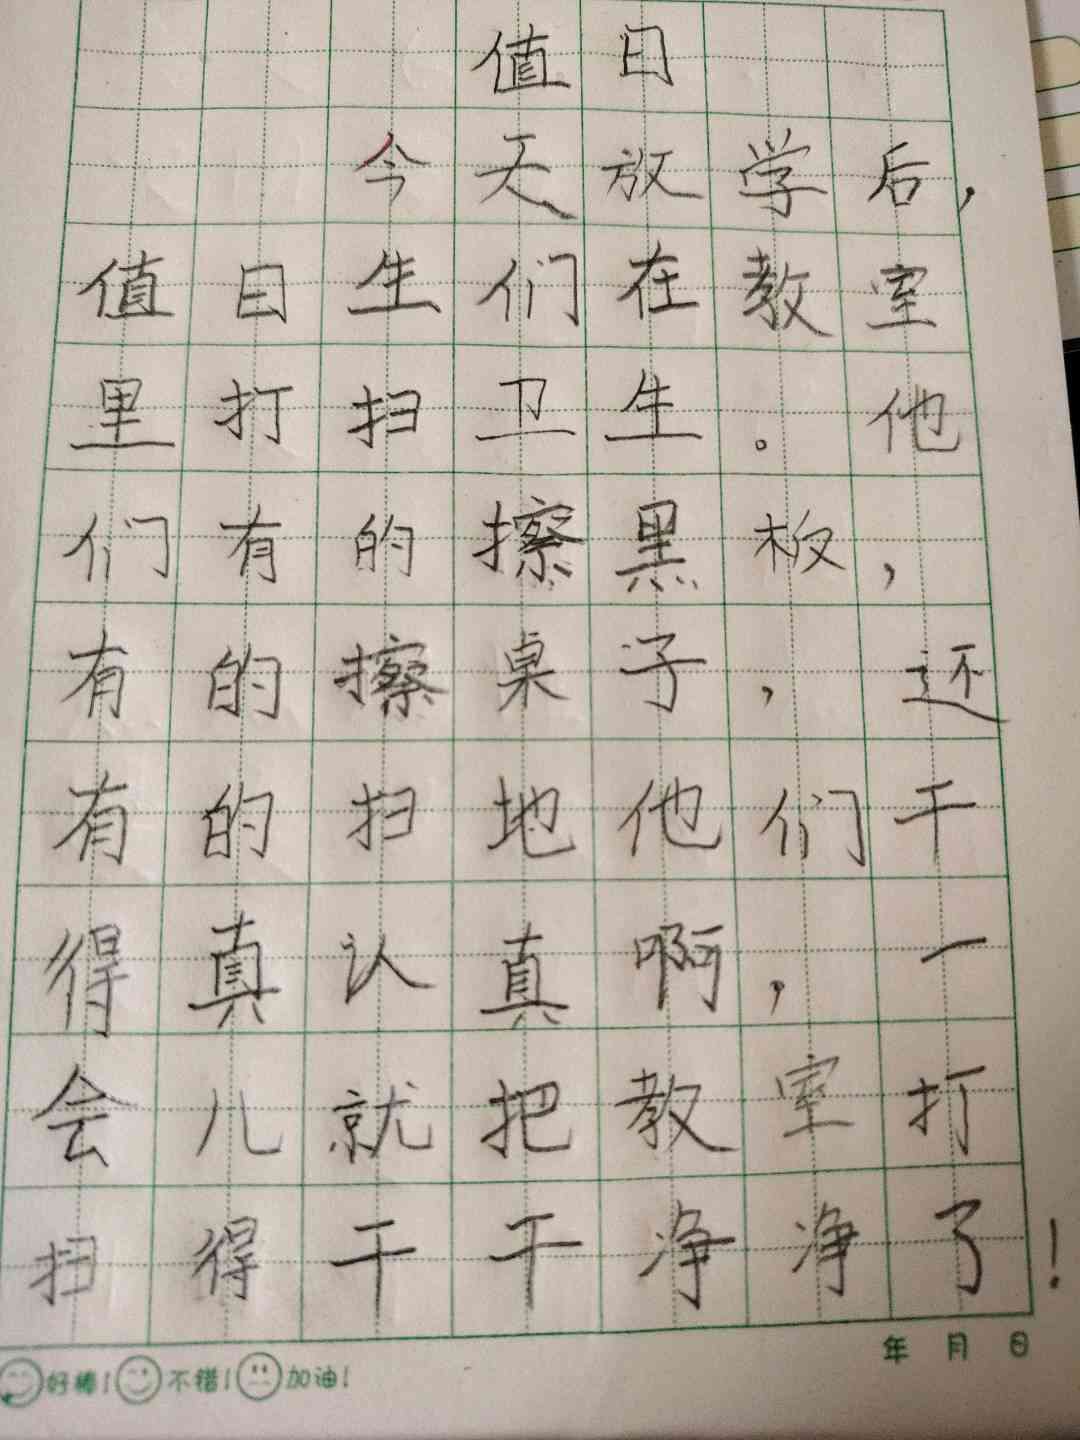 值日
今天放学后，
值日生们在教室
里打扫卫生。他
们有的擦黑板，
有的擦桌子，还
有的扫地他们干
得真认真啊，一
会儿就把教室打
扫得干干净净了！
年 月 日
好棒！不错！加油！